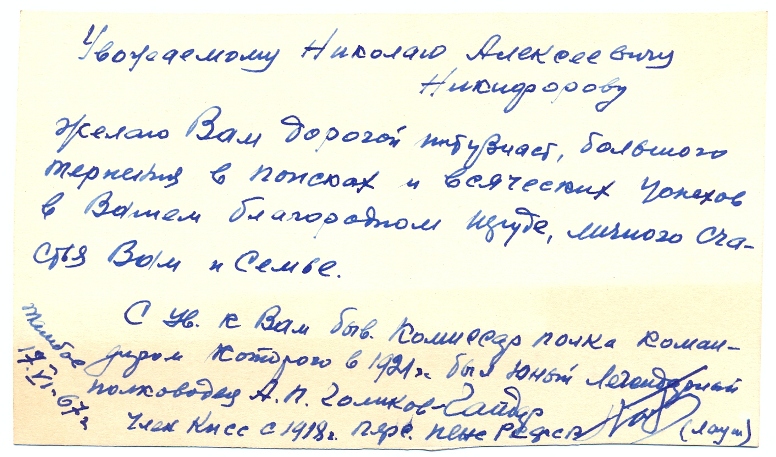 Уважаемому Николаю Алексеевичу
Никифорову
Желаю Вам дорогой интузиаст, большого
терпенья в поисках и всяческих успехов
в Вашем благородном труде, личного сча-
стья Вам и Семье.
С ув. к Вам быв. Комиссар полка коман-
диром которого в 1921 г. был юный легендарный
полководец А. П. Голиков-Гайдар
Член Кпсс с 1918 г. Перс. пенс
17.VI-67 г